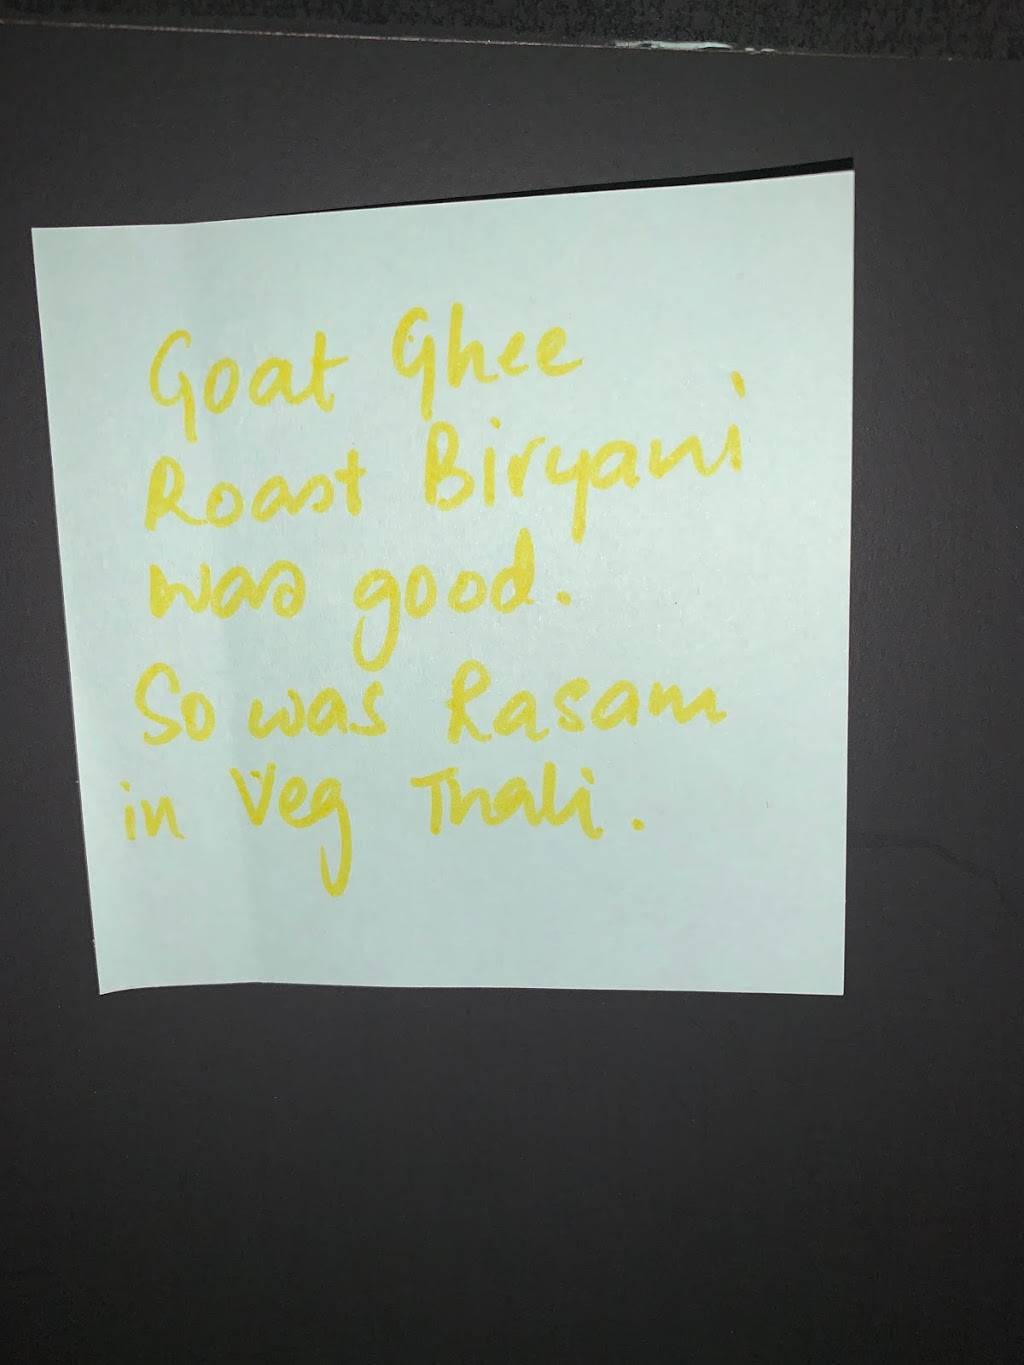 Goat Ghee
Roast Biryani
was good.
So was Rasam
in Veg Thali.